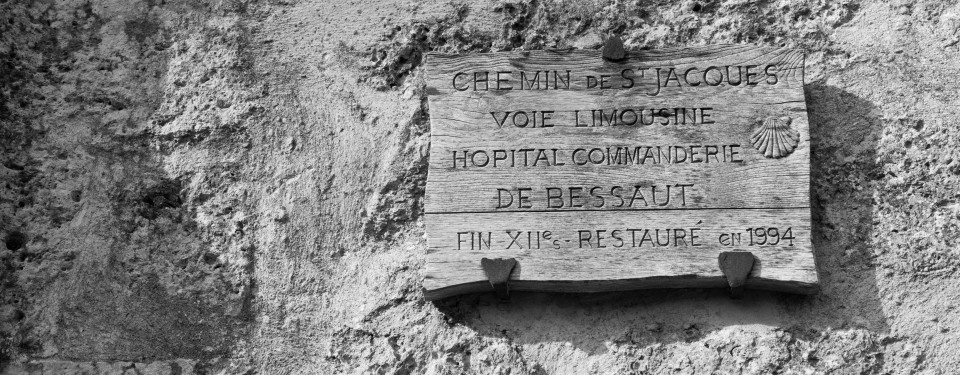 CHEMIN DE ST JACQUES
VOIE LIMOUSINE
HOPITAL COMMANDERIE
DE BESSAUT
FIN - XIIes - RESTAURÉ en 1994